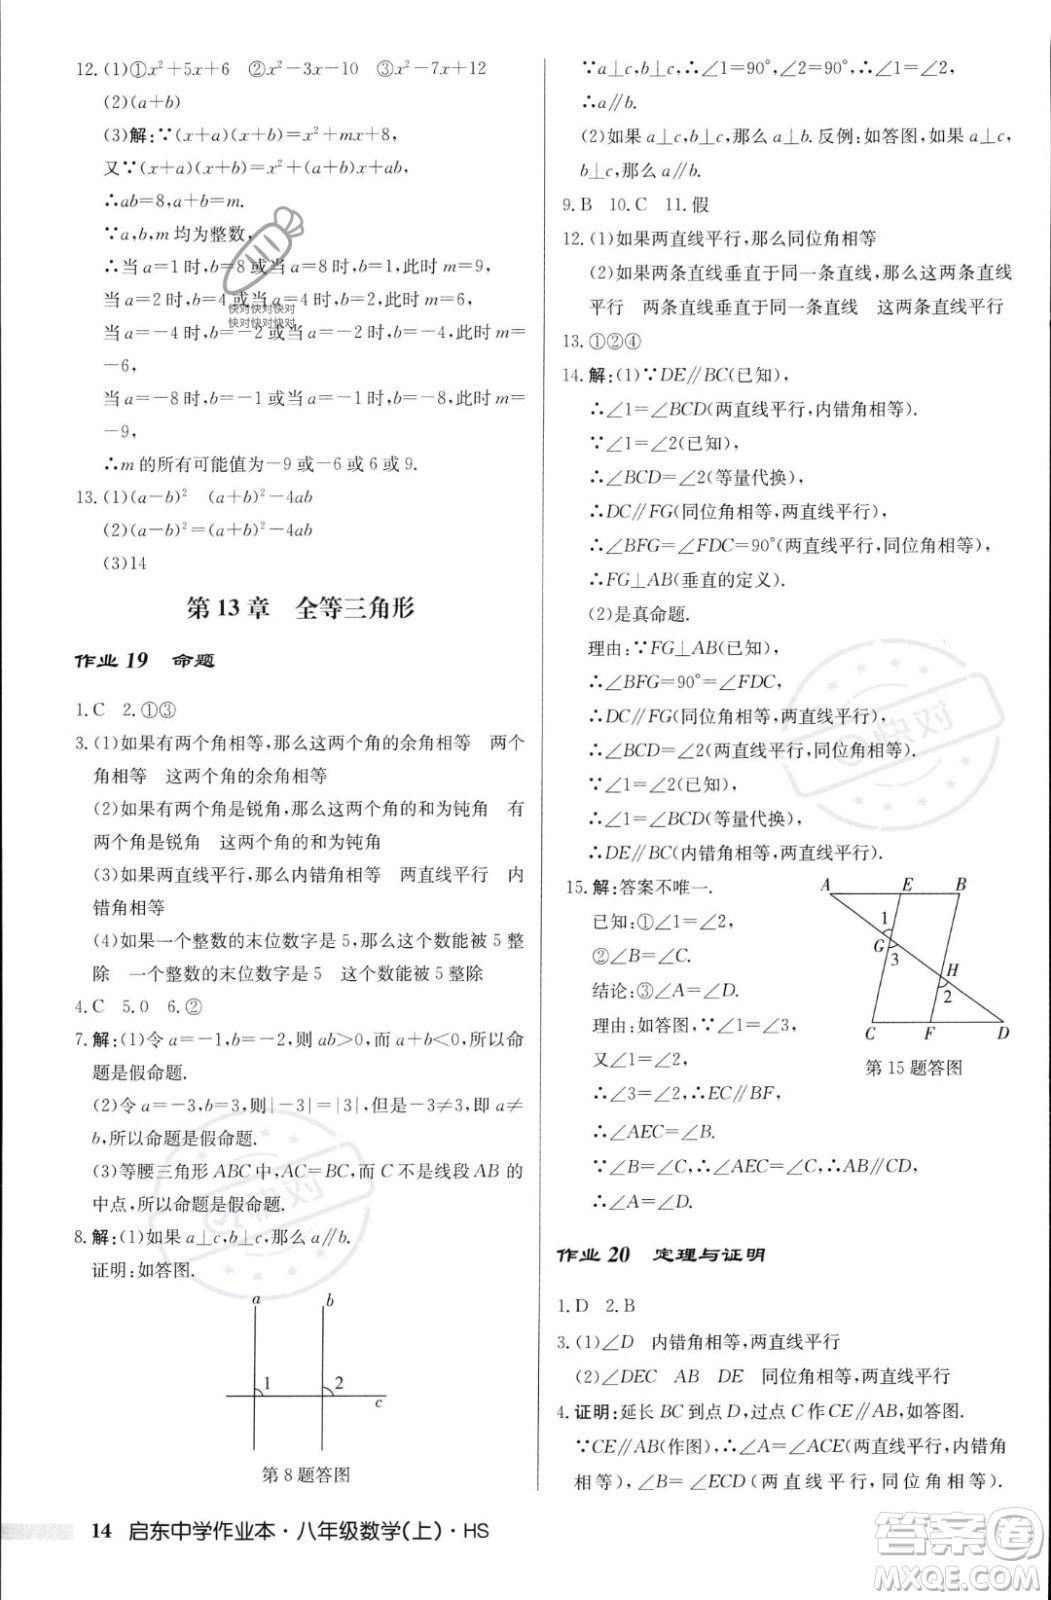 12.(1)①x²+5x+6 ②x²-3x-10 ③x²-7x+12
(2)(a+b)
(3)解:∵(x+a)(x+b)=x²+mx+8,
又∵(x+a)(x+b)=x²+(a+b)x+ab,
∴ab=8,a+b=m.
∵a,b,m 均为整数,
∴当 a=1 时,b=8 或当 a=8 时,b=1,此时 m=9,
当 a=2 时,b=4 或当 a=4 时,b=2,此时 m=6,
当 a=-4 时,b=-2 或当 a=-2 时,b=-4,此时 m=
-6,
当 a=-8 时,b=-1 或当 a=-1 时,b=-8,此时 m=
-9,
∴m 的所有可能值为-9或-6或6或9.
13.(1)(a-b)² (a+b)²-4ab
(2)(a-b)²=(a+b)²-4ab
(3)14
第 13 章 全等三角形
作业 19 命题
1.C 2.①③
3.(1)如果有两个角相等,那么这两个角的余角相等 两个
角相等 这两个角的余角相等
(2)如果有两个角是锐角,那么这两个角的和为钝角 有
两个角是锐角 这两个角的和为钝角
(3)如果两直线平行,那么内错角相等 两直线平行 内
错角相等
(4)如果一个整数的末位数字是 5,那么这个数能被 5 整
除 一个整数的末位数字是 5 这个数能被 5 整除
4.C 5.0 6.②
7.解:(1)令 a=-1,b=-2,则 ab>0,而 a+b<0,所以命
题是假命题.
(2)令 a=-3,b=3,则|-3|=|3|,但是-3≠3,即 a≠
b,所以命题是假命题.
(3)等腰三角形 ABC 中,AC=BC,而 C 不是线段 AB 的
中点,所以命题是假命题.
8.解:(1)如果 a⊥c,b⊥c,那么 a∥b.
证明:如答图.
a b
1 2
c
第 8 题答图
∵a⊥c,b⊥c,∴∠1=90°,∠2=90°,∴∠1=∠2,
∴a∥b.
(2)如果 a⊥c,b⊥c,那么 a⊥b.反例:如答图,如果 a⊥c,
b⊥c,那么 a∥b.
9.B 10.C 11.假
12.(1)如果两直线平行,那么同位角相等
(2)如果两条直线垂直于同一条直线,那么这两条直线
平行 两条直线垂直于同一条直线 这两条直线平行
13.①②④
14.解:(1)∵DE∥BC(已知),
∴∠1=∠BCD(两直线平行,内错角相等).
∵∠1=∠2(已知),
∴∠BCD=∠2(等量代换),
∴DC∥FG(同位角相等,两直线平行),
∴∠BFG=∠FDC=90°(两直线平行,同位角相等),
∴FG⊥AB(垂直的定义).
(2)是真命题.
理由:∵FG⊥AB(已知),
∴∠BFG=90°=∠FDC,
∴DC∥FG(同位角相等,两直线平行),
∴∠2=∠BCD(两直线平行,同位角相等).
∵∠1=∠2(已知),
∴∠1=∠BCD(等量代换),
∴DE∥BC(内错角相等,两直线平行).
15.解:答案不唯一.
已知:①∠1=∠2,
②∠B=∠C.
结论:③∠A=∠D.
理由:如答图,∵∠1=∠3,
又∠1=∠2,
∴∠3=∠2,∴EC∥BF,
∴∠AEC=∠B.
∵∠B=∠C,∴∠AEC=∠C,∴AB∥CD,
∴∠A=∠D.
A E B
1
G 3
H
2
C F D
第 15 题答图
作业 20 定理与证明
1.D 2.B
3.(1)∠D 内错角相等,两直线平行
(2)∠DEC AB DE 同位角相等,两直线平行
4.证明:延长 BC 到点 D,过点 C 作 CE∥AB,如答图.
∵CE∥AB(作图),∴∠A=∠ACE(两直线平行,内错角
相等),∠B=∠ECD(两直线平行,同位角相等).
14 启东中学作业本·八年级数学(上)·HS
快对快对快对
快对快对快对
快对
快对
答案圈
MXQE.COM